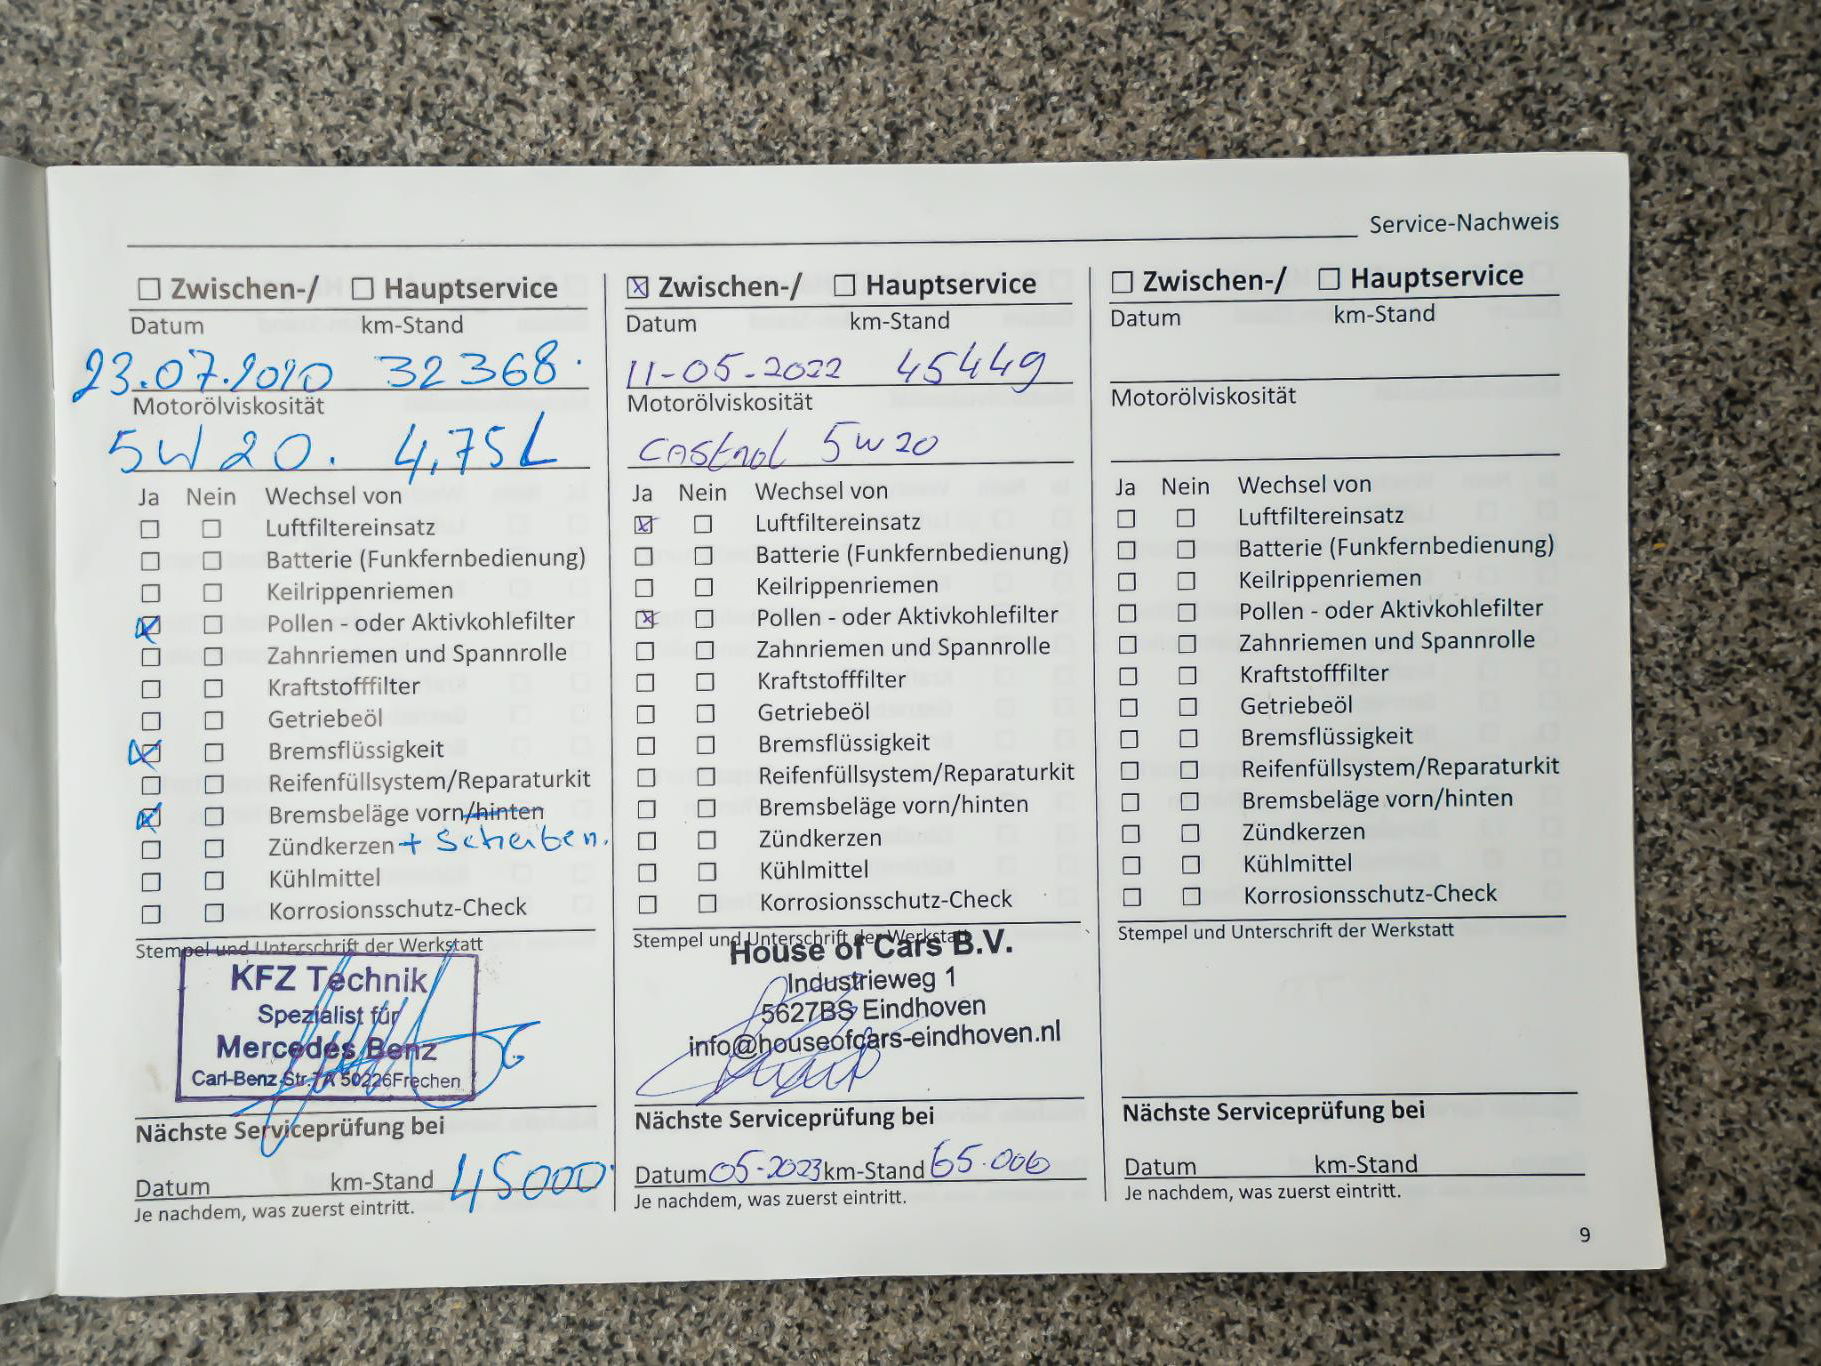 Service-Nachweis
☐ Zwischen-/ ☐ Hauptservice
Datum km-Stand
23.07.2020 32368.
Motorölviskosität
5W20. 4,75L
Ja Nein Wechsel von
☐ ☐ Luftfiltereinsatz
☐ ☐ Batterie (Funkfernbedienung)
☐ ☐ Keilrippenriemen
☒ ☐ Pollen - oder Aktivkohlefilter
☐ ☐ Zahnriemen und Spannrolle
☐ ☐ Kraftstofffilter
☐ ☐ Getriebeöl
☒ ☐ Bremsflüssigkeit
☐ ☐ Reifenfüllsystem/Reparaturkit
☒ ☐ Bremsbeläge vorn/hinten
☐ ☐ Zündkerzen + Scheiben.
☐ ☐ Kühlmittel
☐ ☐ Korrosionsschutz-Check
Stempel und Unterschrift der Werkstatt
KFZ Technik
Spezialist für
Mercedes Benz
Carl-Benz-Str.7A 50226Frechen
Nächste Serviceprüfung bei
Datum km-Stand 45000
Je nachdem, was zuerst eintritt.
☒ Zwischen-/ ☐ Hauptservice
Datum km-Stand
11-05-2022 45449
Motorölviskosität
Castrol 5w20
Ja Nein Wechsel von
☒ ☐ Luftfiltereinsatz
☐ ☐ Batterie (Funkfernbedienung)
☐ ☐ Keilrippenriemen
☒ ☐ Pollen - oder Aktivkohlefilter
☐ ☐ Zahnriemen und Spannrolle
☐ ☐ Kraftstofffilter
☐ ☐ Getriebeöl
☐ ☐ Bremsflüssigkeit
☐ ☐ Reifenfüllsystem/Reparaturkit
☐ ☐ Bremsbeläge vorn/hinten
☐ ☐ Zündkerzen
☐ ☐ Kühlmittel
☐ ☐ Korrosionsschutz-Check
Stempel und Unterschrift der Werkstatt
House of Cars B.V.
Industrieweg 1
5627BS Eindhoven
info@houseofcars-eindhoven.nl
Nächste Serviceprüfung bei
Datum 05-2023 km-Stand 65.000
Je nachdem, was zuerst eintritt.
☐ Zwischen-/ ☐ Hauptservice
Datum km-Stand
Motorölviskosität
Ja Nein Wechsel von
☐ ☐ Luftfiltereinsatz
☐ ☐ Batterie (Funkfernbedienung)
☐ ☐ Keilrippenriemen
☐ ☐ Pollen - oder Aktivkohlefilter
☐ ☐ Zahnriemen und Spannrolle
☐ ☐ Kraftstofffilter
☐ ☐ Getriebeöl
☐ ☐ Bremsflüssigkeit
☐ ☐ Reifenfüllsystem/Reparaturkit
☐ ☐ Bremsbeläge vorn/hinten
☐ ☐ Zündkerzen
☐ ☐ Kühlmittel
☐ ☐ Korrosionsschutz-Check
Stempel und Unterschrift der Werkstatt
Nächste Serviceprüfung bei
Datum km-Stand
Je nachdem, was zuerst eintritt.
9